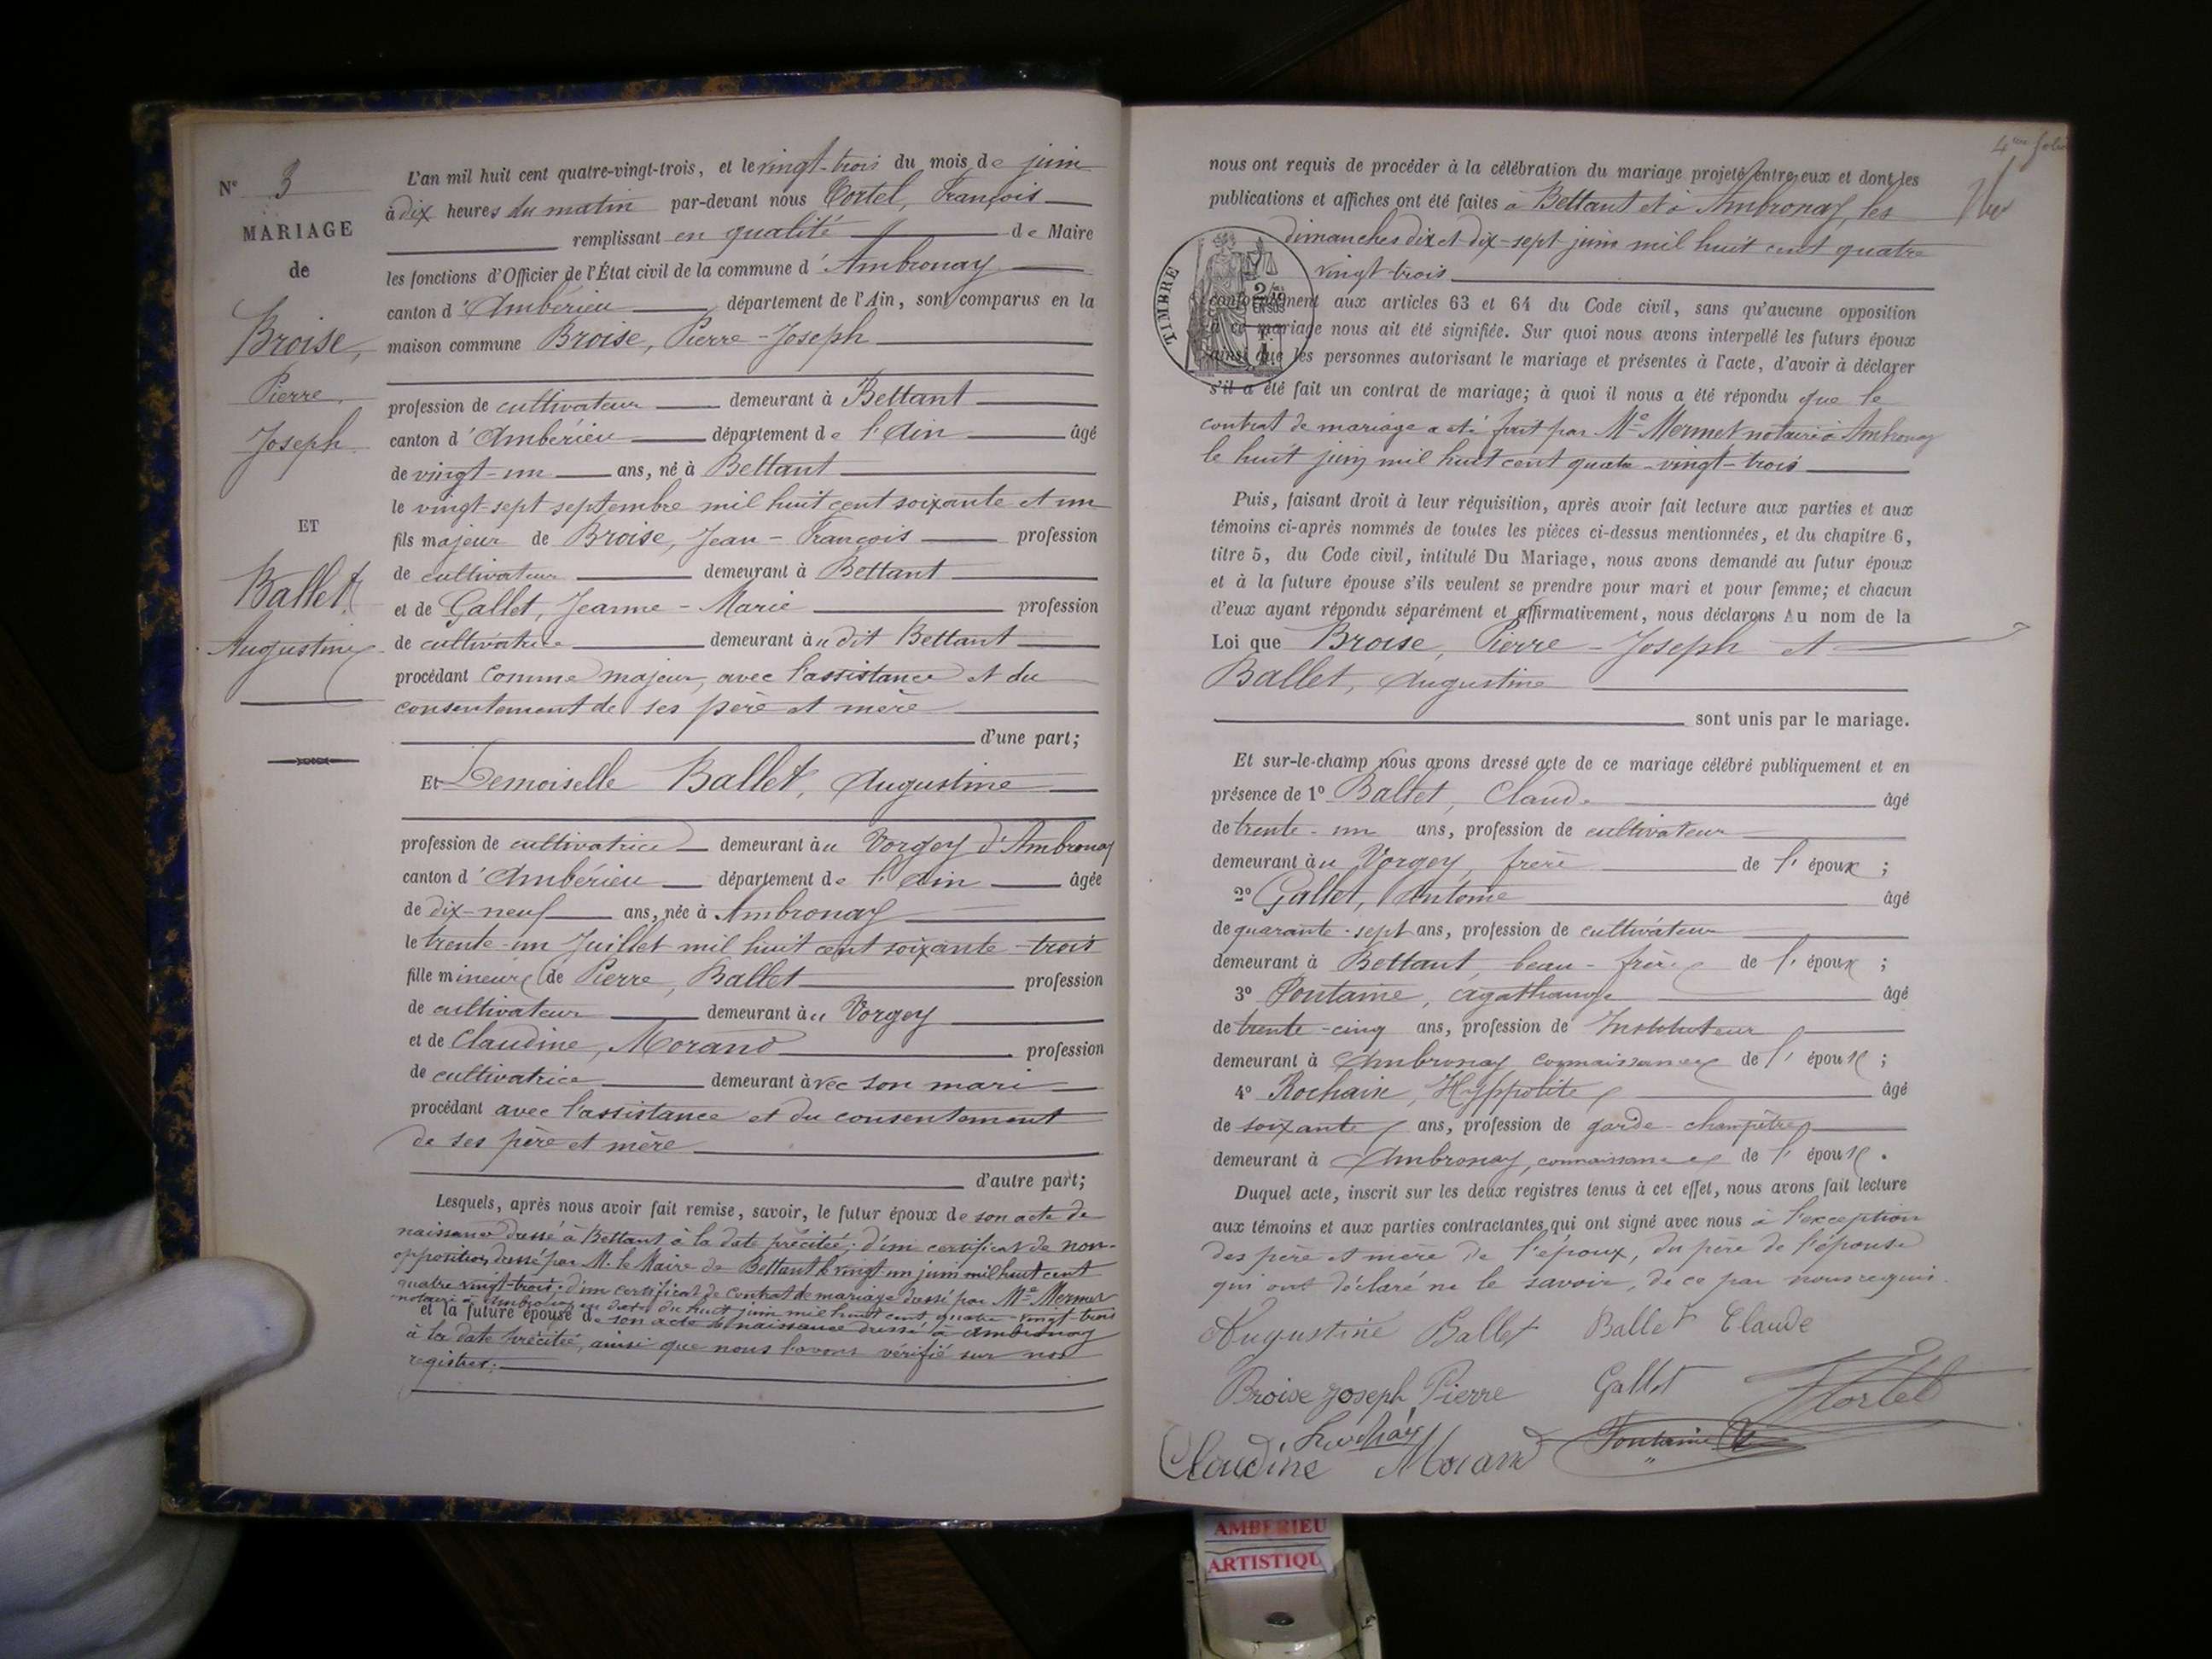 N° 3
MARIAGE
de
Broise,
Pierre
Joseph
ET
Ballet
Augustine
L'an mil huit cent quatre-vingt-trois, et le vingt-trois du mois de juin
à dix heures du matin par-devant nous Tortel, François
remplissant en qualité de Maire
les fonctions d'Officier de l'État civil de la commune d'Ambronay
canton d'Ambérieu département de l'Ain, sont comparus en la
maison commune Broise, Pierre-Joseph
profession de cultivateur demeurant à Bettant
canton d'Ambérieu département de l'Ain âgé
de vingt-un ans, né à Bettant
le vingt-sept septembre mil huit cent soixante et un
fils majeur de Broise, Jean-François profession
de cultivateur demeurant à Bettant
et de Gallet, Jeanne-Marie profession
de cultivatrice demeurant àu dit Bettant
procédant comme majeur, avec l'assistance et du
consentement de ses père et mère
d'une part;
Et Demoiselle Ballet, Augustine
profession de cultivatrice demeurant àu Vorgey d'Ambronay
canton d'Ambérieu département de l'Ain âgée
de dix-neuf ans, née à Ambronay
le trente-un Juillet mil huit cent soixante-trois
fille mineure de Pierre, Ballet profession
de cultivateur demeurant àu Vorgey
et de Claudine, Morand profession
de cultivatrice demeurant àvec son mari
procédant avec l'assistance et du consentement
de ses père et mère
d'autre part;
Lesquels, après nous avoir fait remise, savoir, le futur époux de son acte de
naissance dressé à Bettant à la date précitée; d'un certificat de non-
opposition dressé par M. le Maire de Bettant le vingt-un juin mil huit cent
quatre vingt-trois; d'un certificat de contrat de mariage dressé par Me Mermet
notaire à Ambronay en date du huit juin mil huit cent quatre-vingt-trois
et la future épouse de son acte de naissance dressé à Ambronay
à la date précitée, ainsi que nous l'avons vérifié sur nos
registres.
4me folio
nous ont requis de procéder à la célébration du mariage projeté entre eux et dont les
publications et affiches ont été faites à Bettant et à Ambronay, les
dimanches dix et dix-sept juin mil huit cent quatre
vingt trois
TIMBRE
2/10 EN SUS
conformément aux articles 63 et 64 du Code civil, sans qu'aucune opposition
à ce mariage nous ait été signifiée. Sur quoi nous avons interpellé les futurs époux
ainsi que les personnes autorisant le mariage et présentes à l'acte, d'avoir à déclarer
s'il a été fait un contrat de mariage; à quoi il nous a été répondu que le
contrat de mariage a été fait par Me Mermet notaire à Ambronay
le huit juin mil huit cent quatre-vingt-trois
Puis, faisant droit à leur réquisition, après avoir fait lecture aux parties et aux
témoins ci-après nommés de toutes les pièces ci-dessus mentionnées, et du chapitre 6,
titre 5, du Code civil, intitulé Du Mariage, nous avons demandé au futur époux
et à la future épouse s'ils veulent se prendre pour mari et pour femme; et chacun
d'eux ayant répondu séparément et affirmativement, nous déclarons Au nom de la
Loi que Broise, Pierre-Joseph et
Ballet, Augustine
sont unis par le mariage.
Et sur-le-champ nous avons dressé acte de ce mariage célébré publiquement et en
présence de 1° Ballet, Claude âgé
de trente-un ans, profession de cultivateur
demeurant àu Vorgey, frère de l'époux;
2° Gallet, Antoine âgé
de quarante-sept ans, profession de cultivateur
demeurant à Bettant, beau-frère de l'époux;
3° Fontaine, Agathange âgé
de trente-cinq ans, profession de Instituteur
demeurant à Ambronay connaissance de l'épouse;
4° Rochaix, Hyppolite âgé
de soixante ans, profession de garde-champêtre
demeurant à Ambronay, connaissance de l'épouse.
Duquel acte, inscrit sur les deux registres tenus à cet effet, nous avons fait lecture
aux témoins et aux parties contractantes, qui ont signé avec nous à l'exception
des père et mère de l'époux, du père de l'épouse
qui ont déclaré ne le savoir, de ce par nous requis.
Augustine Ballet Ballet Claude
Broise Joseph Pierre Gallet Tortel
Claudine Morand Fontaine
AMBERIEU
ARTISTIQU